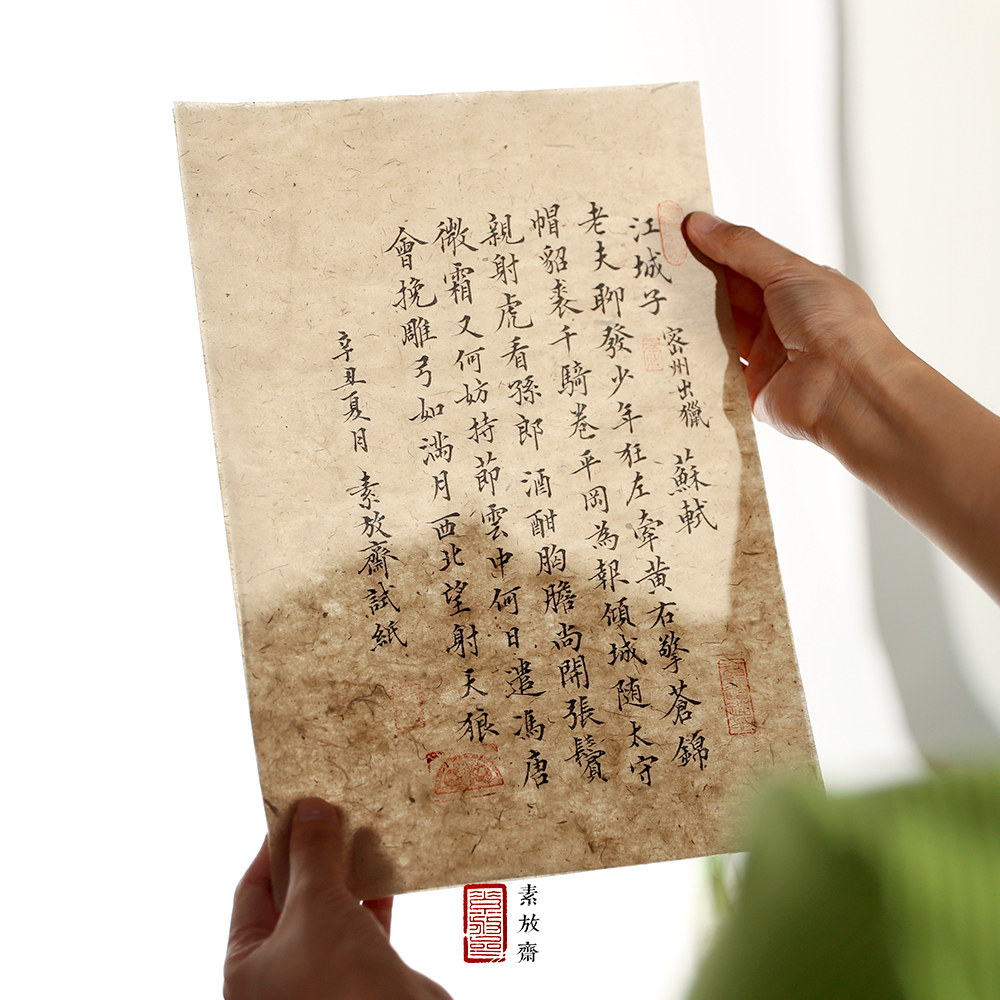 江城子 密州出獵 蘇軾
老夫聊發少年狂左牽黄右擎蒼錦
帽貂裘千騎卷平岡為報傾城随太守
親射虎看孫郎 酒酣胸膽尚開張鬢
微霜又何妨持節雲中何日遣馮唐
會挽雕弓如滿月西北望射天狼
辛丑夏月 素放齋試紙
素放齋